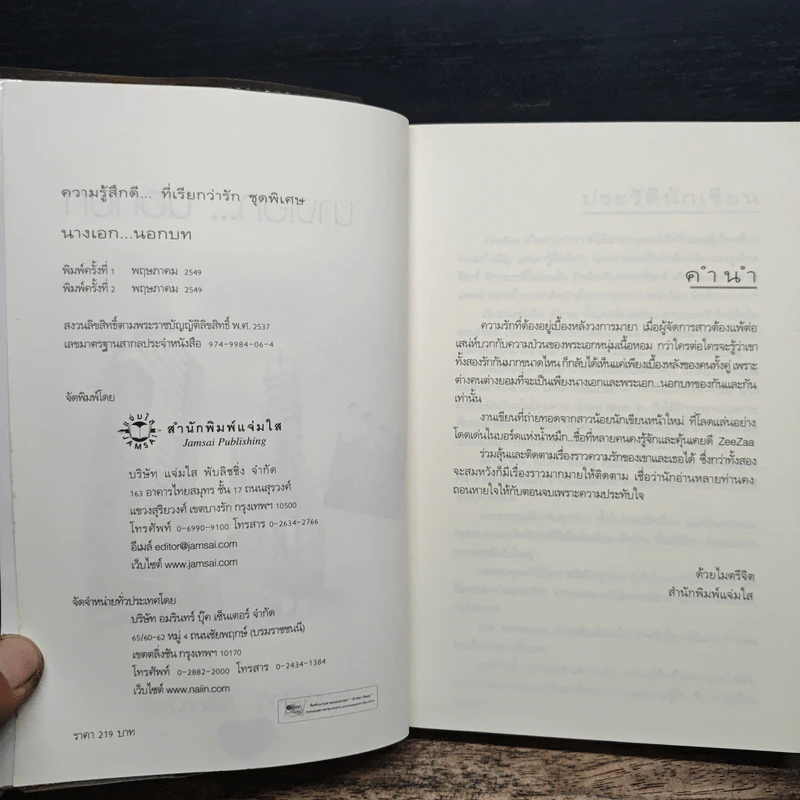 ความรู้สึกดี... ที่เรียกว่ารัก ชุดพิเศษ
นางเอก...นอกบท
พิมพ์ครั้งที่ 1 พฤษภาคม 2549
พิมพ์ครั้งที่ 2 พฤษภาคม 2549
สงวนลิขสิทธิ์ตามพระราชบัญญัติลิขสิทธิ์ พ.ศ. 2537
เลขมาตรฐานสากลประจำหนังสือ 974-9984-06-4
จัดพิมพ์โดย
แจ่มใส
JAMSAI
สำนักพิมพ์แจ่มใส
Jamsai Publishing
บริษัท แจ่มใส พับลิชชิ่ง จำกัด
163 อาคารไทยสมุทร ชั้น 17 ถนนสุรวงศ์
แขวงสุริยวงศ์ เขตบางรัก กรุงเทพฯ 10500
โทรศัพท์ 0-6990-9100 โทรสาร 0-2634-2766
อีเมล์ editor@jamsai.com
เว็บไซต์ www.jamsai.com
จัดจำหน่ายทั่วประเทศโดย
บริษัท อมรินทร์ บุ๊ค เซ็นเตอร์ จำกัด
65/60-62 หมู่ 4 ถนนชัยพฤกษ์ (บรมราชชนนี)
เขตตลิ่งชัน กรุงเทพฯ 10170
โทรศัพท์ 0-2882-2000 โทรสาร 0-2434-1384
เว็บไซต์ www.naiin.com
ราคา 219 บาท
คำนำ
ความรักที่ต้องอยู่เบื้องหลังวงการมายา เมื่อผู้จัดการสาวต้องแพ้ต่อ
เสน่ห์บวกกับความป่วนของพระเอกหนุ่มเนื้อหอม กว่าใครต่อใครจะรู้ว่าเขา
ทั้งสองรักกันมากขนาดไหน ก็กลับได้เห็นแค่เพียงเบื้องหลังของคนทั้งคู่ เพราะ
ต่างคนต่างยอมที่จะเป็นเพียงนางเอกและพระเอก...นอกบทของกันและกัน
เท่านั้น
งานเขียนที่ถ่ายทอดจากสาวน้อยนักเขียนหน้าใหม่ ที่โลดแล่นอย่าง
โดดเด่นในบอร์ดแห่งน้ำหมึก...ชื่อที่หลายคนคงรู้จักและคุ้นเคยดี ZeeZaa
ร่วมลุ้นและติดตามเรื่องราวความรักของเขาและเธอได้ ซึ่งกว่าทั้งสอง
จะสมหวังก็มีเรื่องราวมากมายให้ติดตาม เชื่อว่านักอ่านหลายท่านคง
ถอนหายใจให้กับตอนจบเพราะความประทับใจ
ด้วยไมตรีจิต
สำนักพิมพ์แจ่มใส